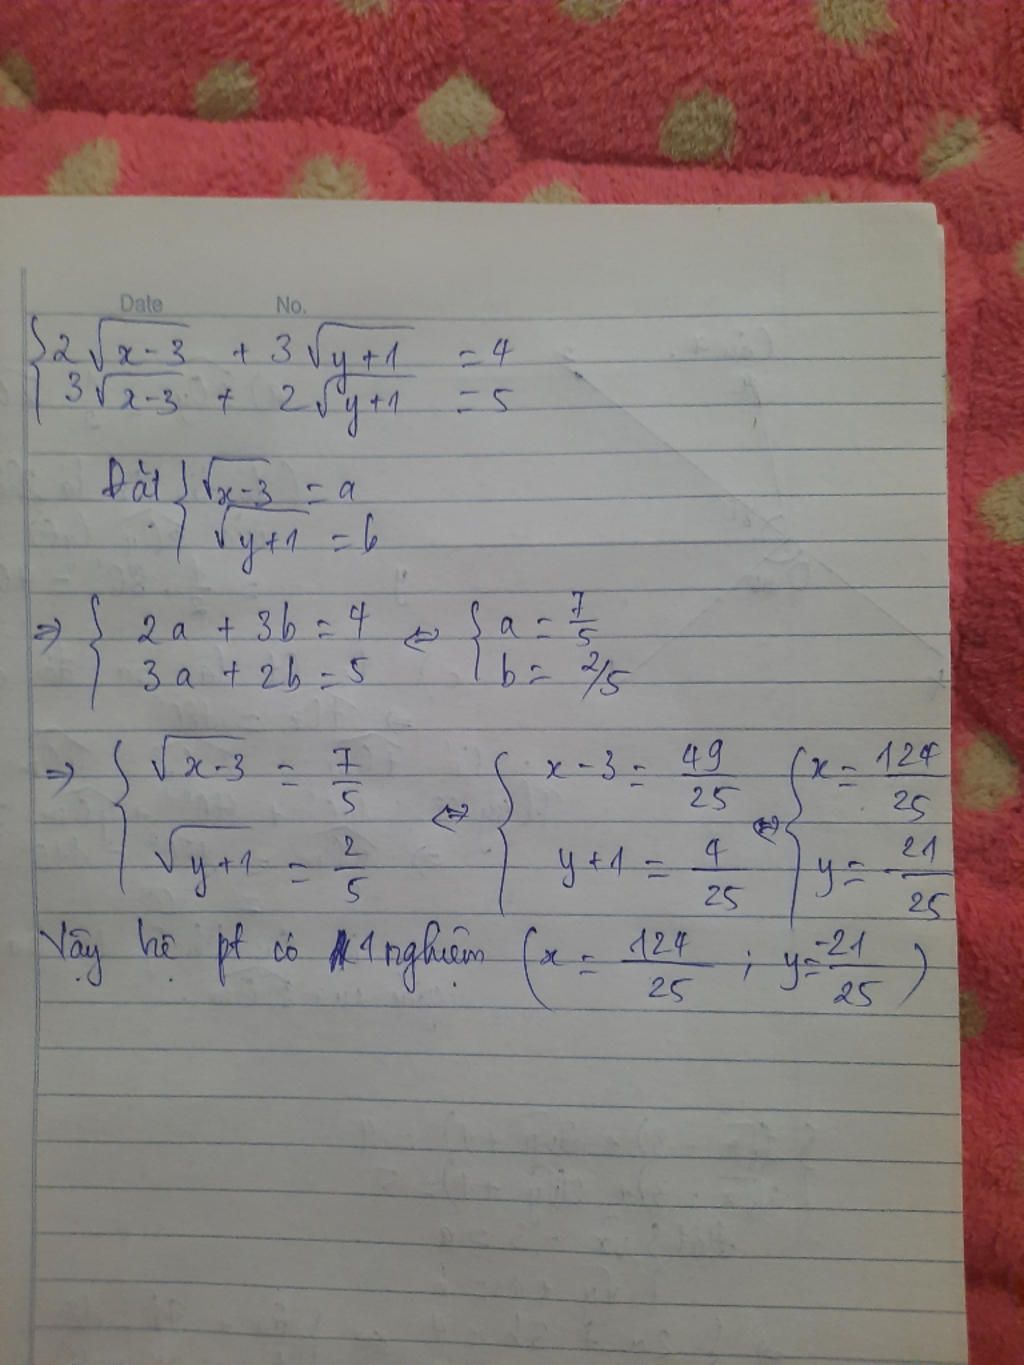 Date No.
{ 2√(x-3) + 3√(y+1) = 4
3√(x-3) + 2√(y+1) = 5
Đặt { √(x-3) = a
√(y+1) = b
⇒ { 2a + 3b = 4 ⇔ { a = 7/5
3a + 2b = 5 b = 2/5
⇒ { √(x-3) = 7/5 ⇔ { x-3 = 49/25 ⇔ { x = 124/25
√(y+1) = 2/5 y+1 = 4/25 y = -21/25
Vậy hệ pt có 1 nghiệm (x = 124/25 ; y = -21/25)